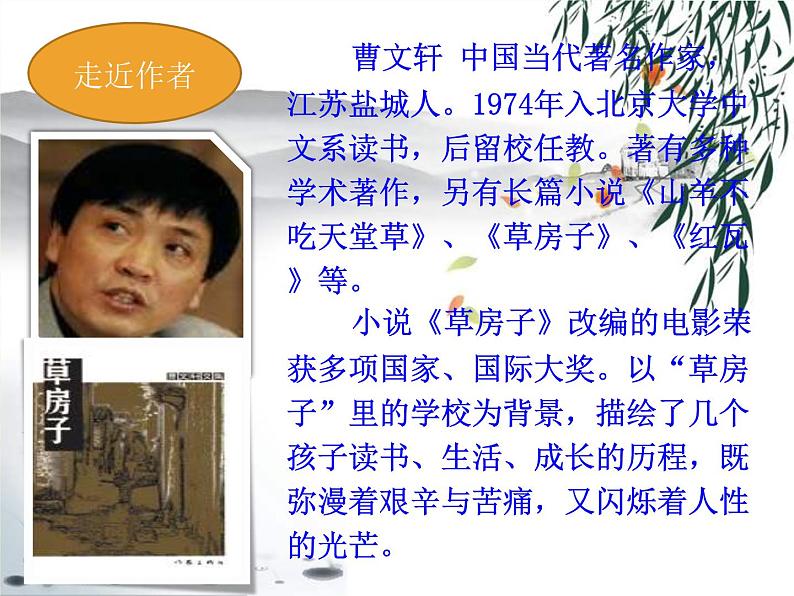 走近作者
曹文轩 中国当代著名作家，
江苏盐城人。1974年入北京大学中
文系读书，后留校任教。著有多种
学术著作，另有长篇小说《山羊不
吃天堂草》、《草房子》、《红瓦
》等。
小说《草房子》改编的电影荣
获多项国家、国际大奖。以“草房
子”里的学校为背景，描绘了几个
孩子读书、生活、成长的历程，既
弥漫着艰辛与苦痛，又闪烁着人性
的光芒。
草房子
曹文轩文集
作家出版社